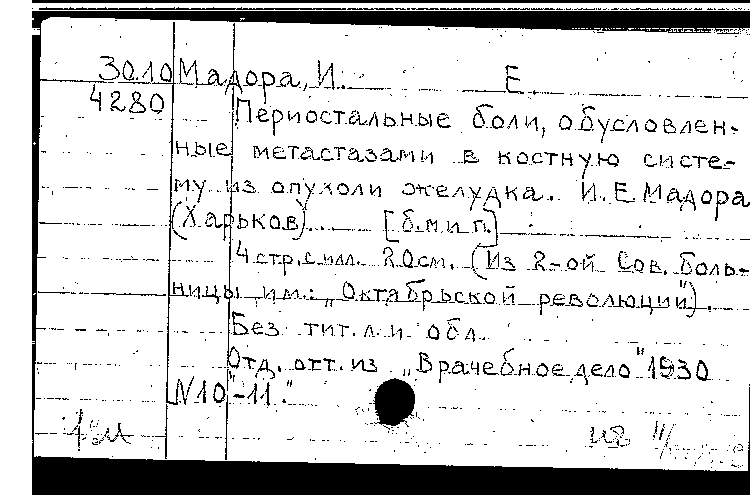 30.10 Мадора, И. Е.
4280 Периостальные боли, обусловлен-
ные метастазами в костную систе-
му из опухоли желудка. И. Е Мадора
(Харьков). [б.м.и г.]
4 стр. с илл. 20 см. (Из 2-ой Сов. боль-
ницы им.: „Октябрьской революции").
Без тит. л. и обл.
Отд. отт. из „Врачебное дело" 1930
N10-11."